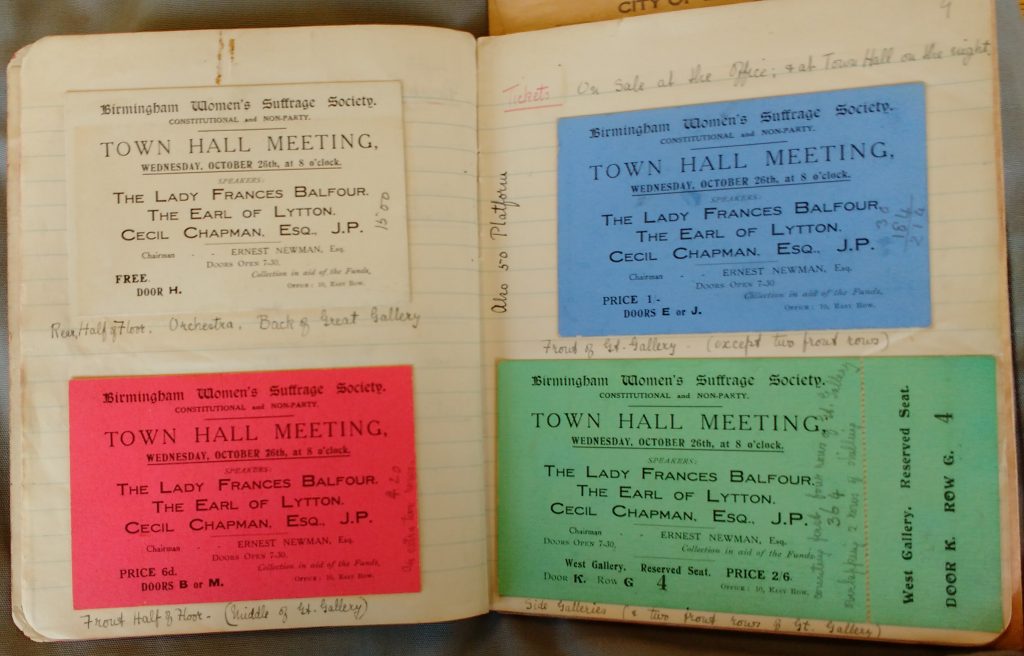 CITY OF
Birmingham Women's Suffrage Society.
CONSTITUTIONAL and NON-PARTY.
TOWN HALL MEETING,
WEDNESDAY, OCTOBER 26th, at 8 o'clock.
SPEAKERS:
THE LADY FRANCES BALFOUR.
THE EARL OF LYTTON.
CECIL CHAPMAN, ESQ., J.P.
Chairman - - ERNEST NEWMAN, Esq.
DOORS OPEN 7-30.
Collection in aid of the Funds.
FREE.
DOOR H.
OFFICE: 10, EASY ROW.
1500
Rear Half of Floor. Orchestra. Back of Great Gallery
Birmingham Women's Suffrage Society.
CONSTITUTIONAL and NON-PARTY.
TOWN HALL MEETING,
WEDNESDAY, OCTOBER 26th, at 8 o'clock.
SPEAKERS:
THE LADY FRANCES BALFOUR.
THE EARL OF LYTTON.
CECIL CHAPMAN, ESQ., J.P.
Chairman - - ERNEST NEWMAN, Esq.
DOORS OPEN 7-30.
Collection in aid of the Funds.
PRICE 6d.
DOORS B or M.
OFFICE: 10, EASY ROW.
420
Front Half of Floor - (Middle of Gt. Gallery)
Tickets On Sale at the Office; & at Town Hall on the night.
Also 50 Platform
Birmingham Women's Suffrage Society.
CONSTITUTIONAL and NON-PARTY.
TOWN HALL MEETING,
WEDNESDAY, OCTOBER 26th, at 8 o'clock.
SPEAKERS:
THE LADY FRANCES BALFOUR.
THE EARL OF LYTTON.
CECIL CHAPMAN, ESQ., J.P.
Chairman - - ERNEST NEWMAN, Esq.
DOORS OPEN 7-30
Collection in aid of the Funds.
PRICE 1/-
DOORS E or J.
OFFICE: 10, EASY ROW.
30
184
214
Front of Gt. Gallery - (except two front rows)
Birmingham Women's Suffrage Society.
CONSTITUTIONAL and NON-PARTY.
TOWN HALL MEETING,
WEDNESDAY, OCTOBER 26th, at 8 o'clock.
SPEAKERS:
THE LADY FRANCES BALFOUR.
THE EARL OF LYTTON.
CECIL CHAPMAN, ESQ., J.P.
Chairman - - ERNEST NEWMAN, Esq.
DOORS OPEN 7-30.
Collection in aid of the Funds.
West Gallery. Reserved Seat. PRICE 2/6.
DOOR K. ROW G 4
OFFICE: 10, EASY ROW.
364
West Gallery. Reserved Seat.
DOOR K. ROW G. 4
Side Galleries (& two front rows of Gt. Gallery)